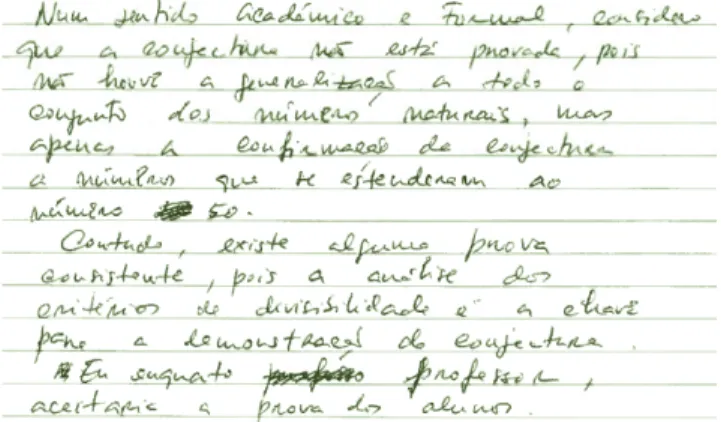 Num sentido académico e formal, considero
que a conjectura não está provada, pois
não houve a generalização a todo o
conjunto dos números naturais, mas
apenas a confirmação da conjectura
a números que se estenderam ao
número 50.
Contudo, existe alguma prova
consistente, pois a análise dos
critérios de divisibilidade é a chave
para a demonstração da conjectura.
Eu enquanto professor,
aceitaria a prova dos alunos.